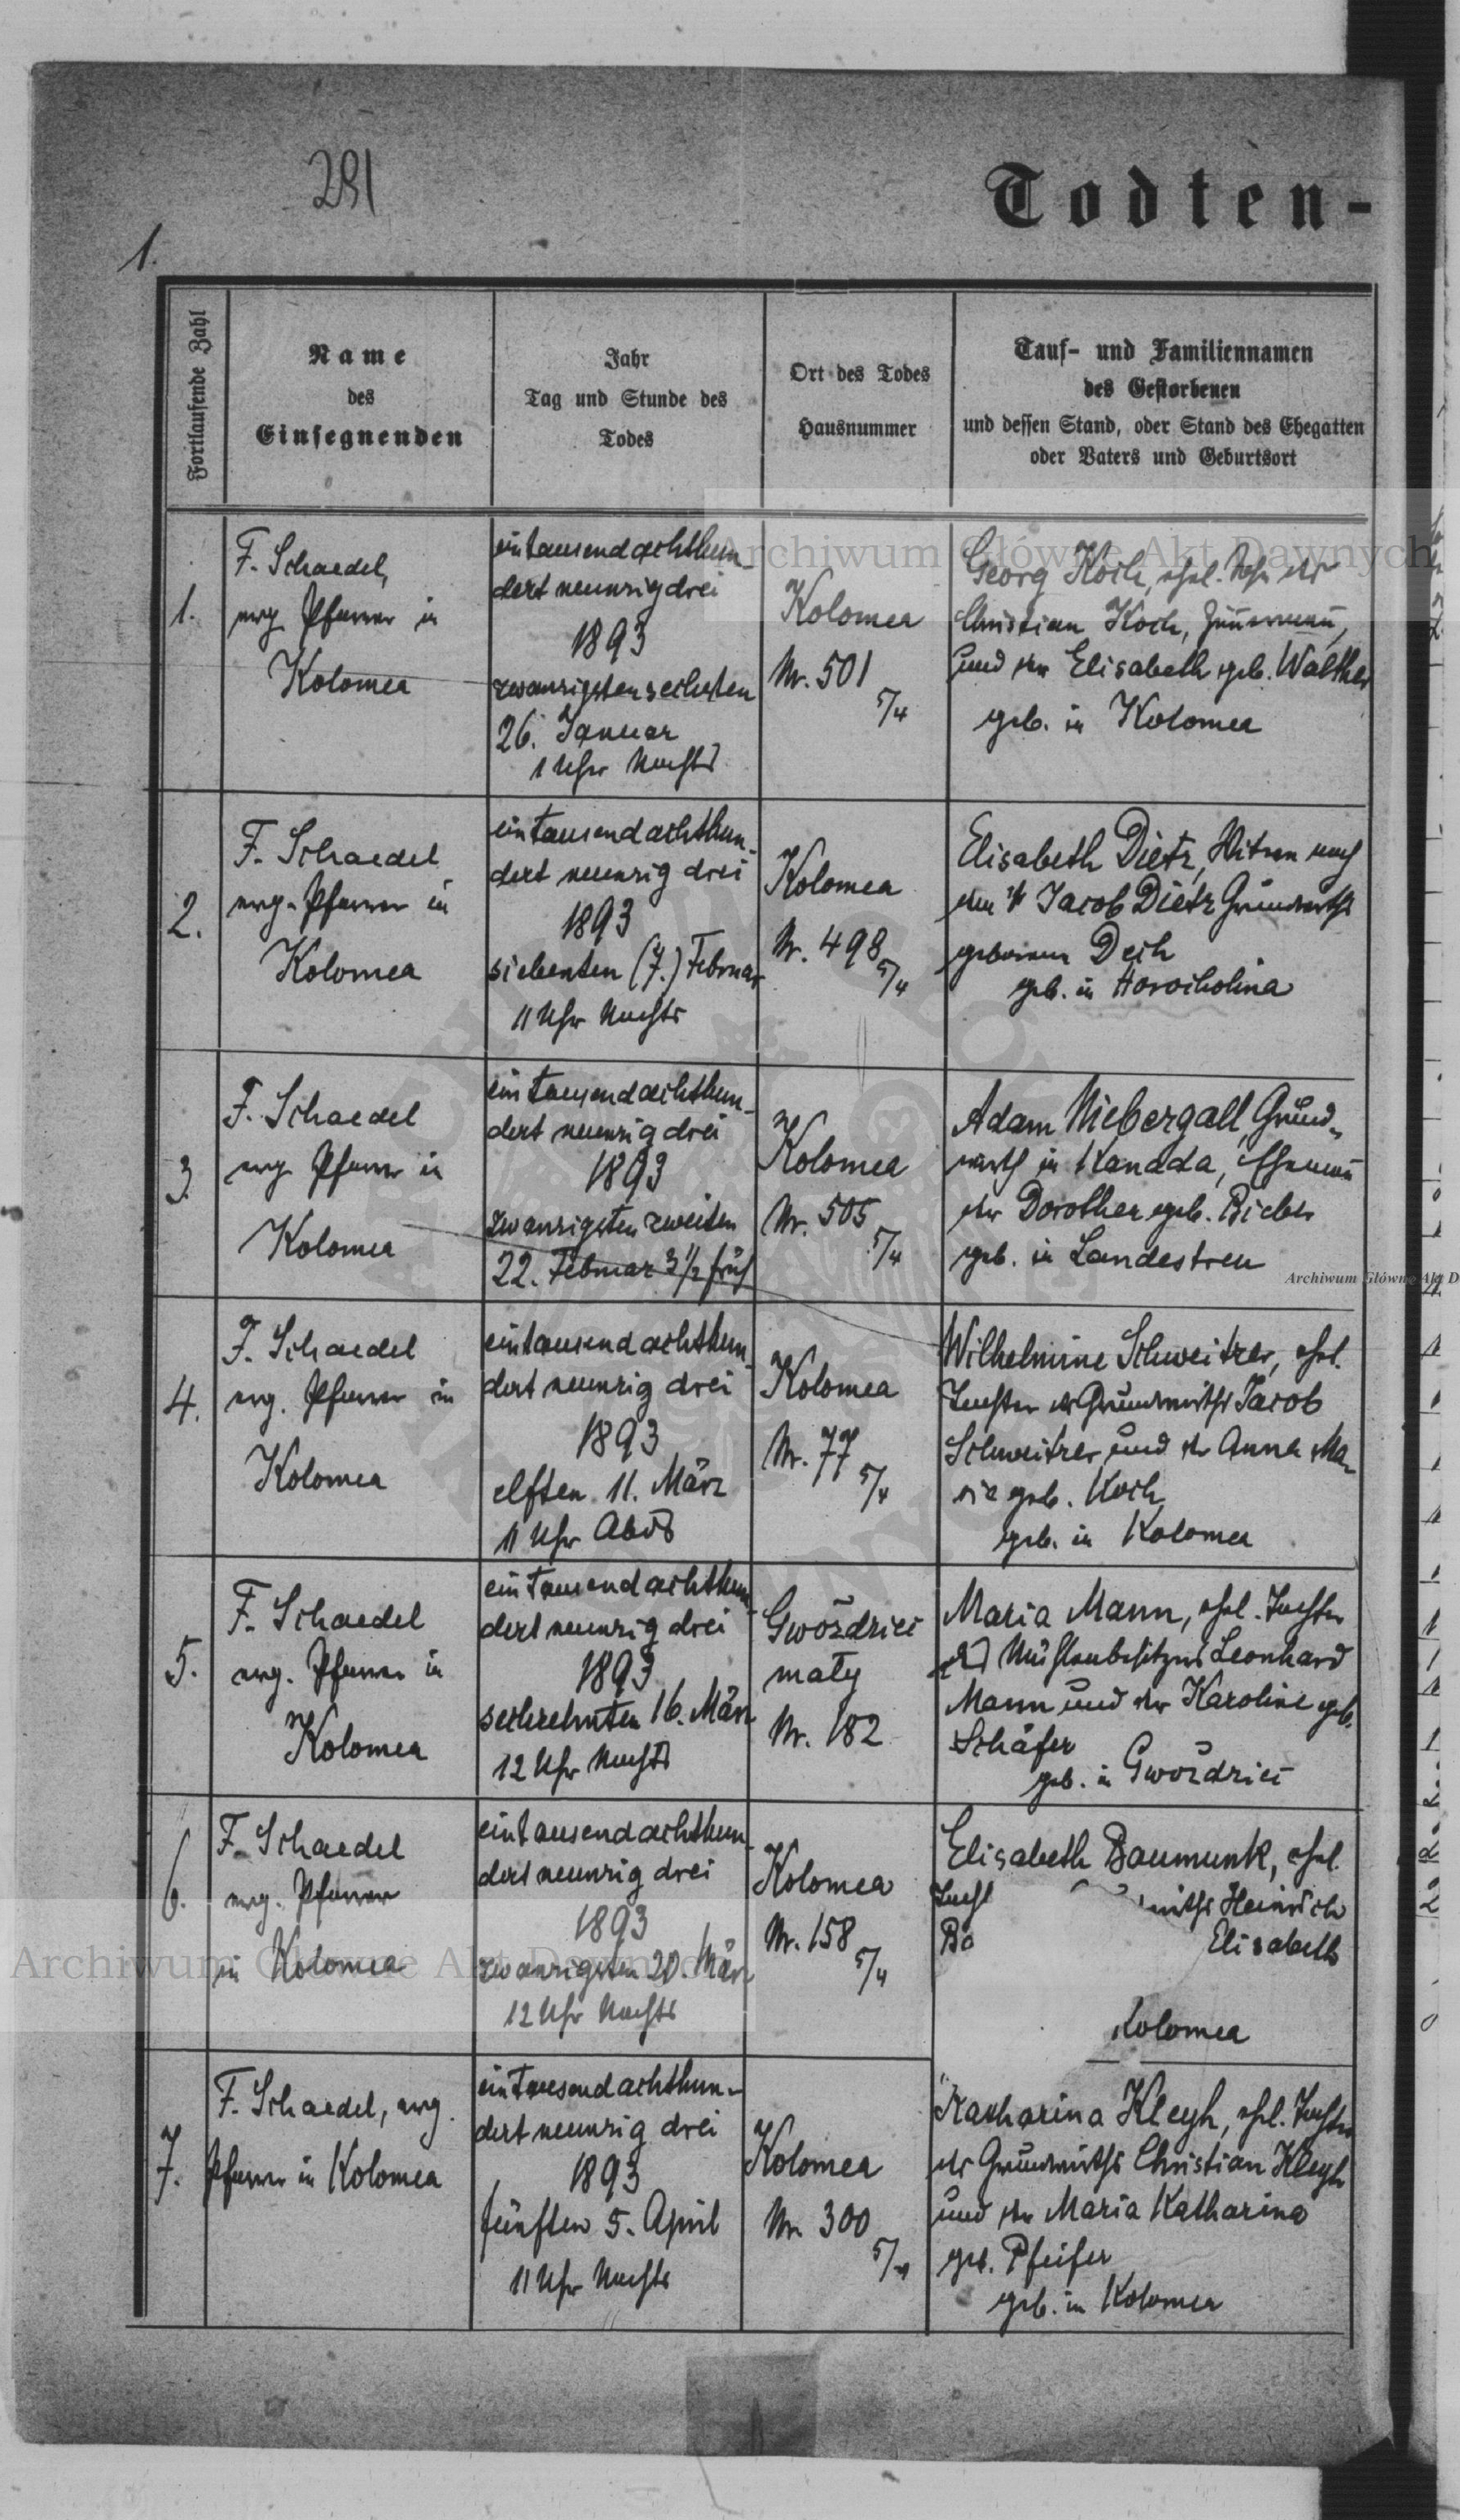 291
1.
Todten-
Fortlaufende Zahl
Name
des
Einsegnenden
Jahr
Tag und Stunde des
Todes
Ort des Todes
Hausnummer
Tauf- und Familiennamen
des Gestorbenen
und dessen Stand, oder Stand des Ehegatten
oder Vaters und Geburtsort
1.
F. Schaedel,
evg. Pfarrer in
Kolomea
eintausendachthun-
dert neunzig drei
1893
zwanzigsten sechsten
26. Januar
1 Uhr Nachts
Kolomea
Nr. 501
5/4
Georg Koch, ehel. Sohn des
Christian Koch, Zimmermann,
und der Elisabeth geb. Walther
geb. in Kolomea
2.
F. Schaedel
evg. Pfarrer in
Kolomea
eintausendachthun-
dert neunzig drei
1893
siebenten (7.) Februar
11 Uhr Nachts
Kolomea
Nr. 498
5/4
Elisabeth Dietz, Witwe nach
dem † Jacob Dietz Grundwirths
geborene Deck
geb. in Horocholina
3.
F. Schaedel
evg. Pfarrer in
Kolomea
eintausendachthun-
dert neunzig drei
1893
zwanzigsten zweiten
22. Februar 3 1/2 früh
Kolomea
Nr. 505
5/4
Adam Niebergall, Grund-
wirth in Kanada, Ehemann
der Dorothea geb. Bieber
geb. in Landestreu
4.
F. Schaedel
evg. Pfarrer in
Kolomea
eintausendachthun-
dert neunzig drei
1893
elften 11. März
11 Uhr Abds
Kolomea
Nr. 77
5/4
Wilhelmine Schweitzer, ehel.
Tochter des Grundwirths Jacob
Schweitzer und der Anna Ma-
rie geb. Koch
geb. in Kolomea
5.
F. Schaedel
evg. Pfarrer in
Kolomea
eintausendachthun-
dert neunzig drei
1893
sechzehnten 16. März
12 Uhr Nachts
Gwoździec
mały
Nr. 182
Maria Mann, ehel. Tochter
des Mühlenbesitzers Leonhard
Mann und der Karoline geb.
Schäfer
geb. in Gwoździec
6.
F. Schaedel
evg. Pfarrer
in Kolomea
eintausendachthun-
dert neunzig drei
1893
zwanzigsten 20. März
12 Uhr Nachts
Kolomea
Nr. 158
5/4
Elisabeth Baumunk, ehel.
Tocht wirths Heinrich
Ba Elisabeth
Kolomea
7.
F. Schaedel, evg.
Pfarrer in Kolomea
eintausendachthun-
dert neunzig drei
1893
fünften 5. April
11 Uhr Nachts
Kolomea
Nr. 300
5/4
Katharina Kleyh, ehel. Tochter
des Grundwirths Christian Kleyh
und der Maria Katharina
geb. Pfeifer
geb. in Kolomea
Archiwum Główne Akt Dawnych
Archiwum Główne Akt D
Archiwum Główne Akt Dawnych